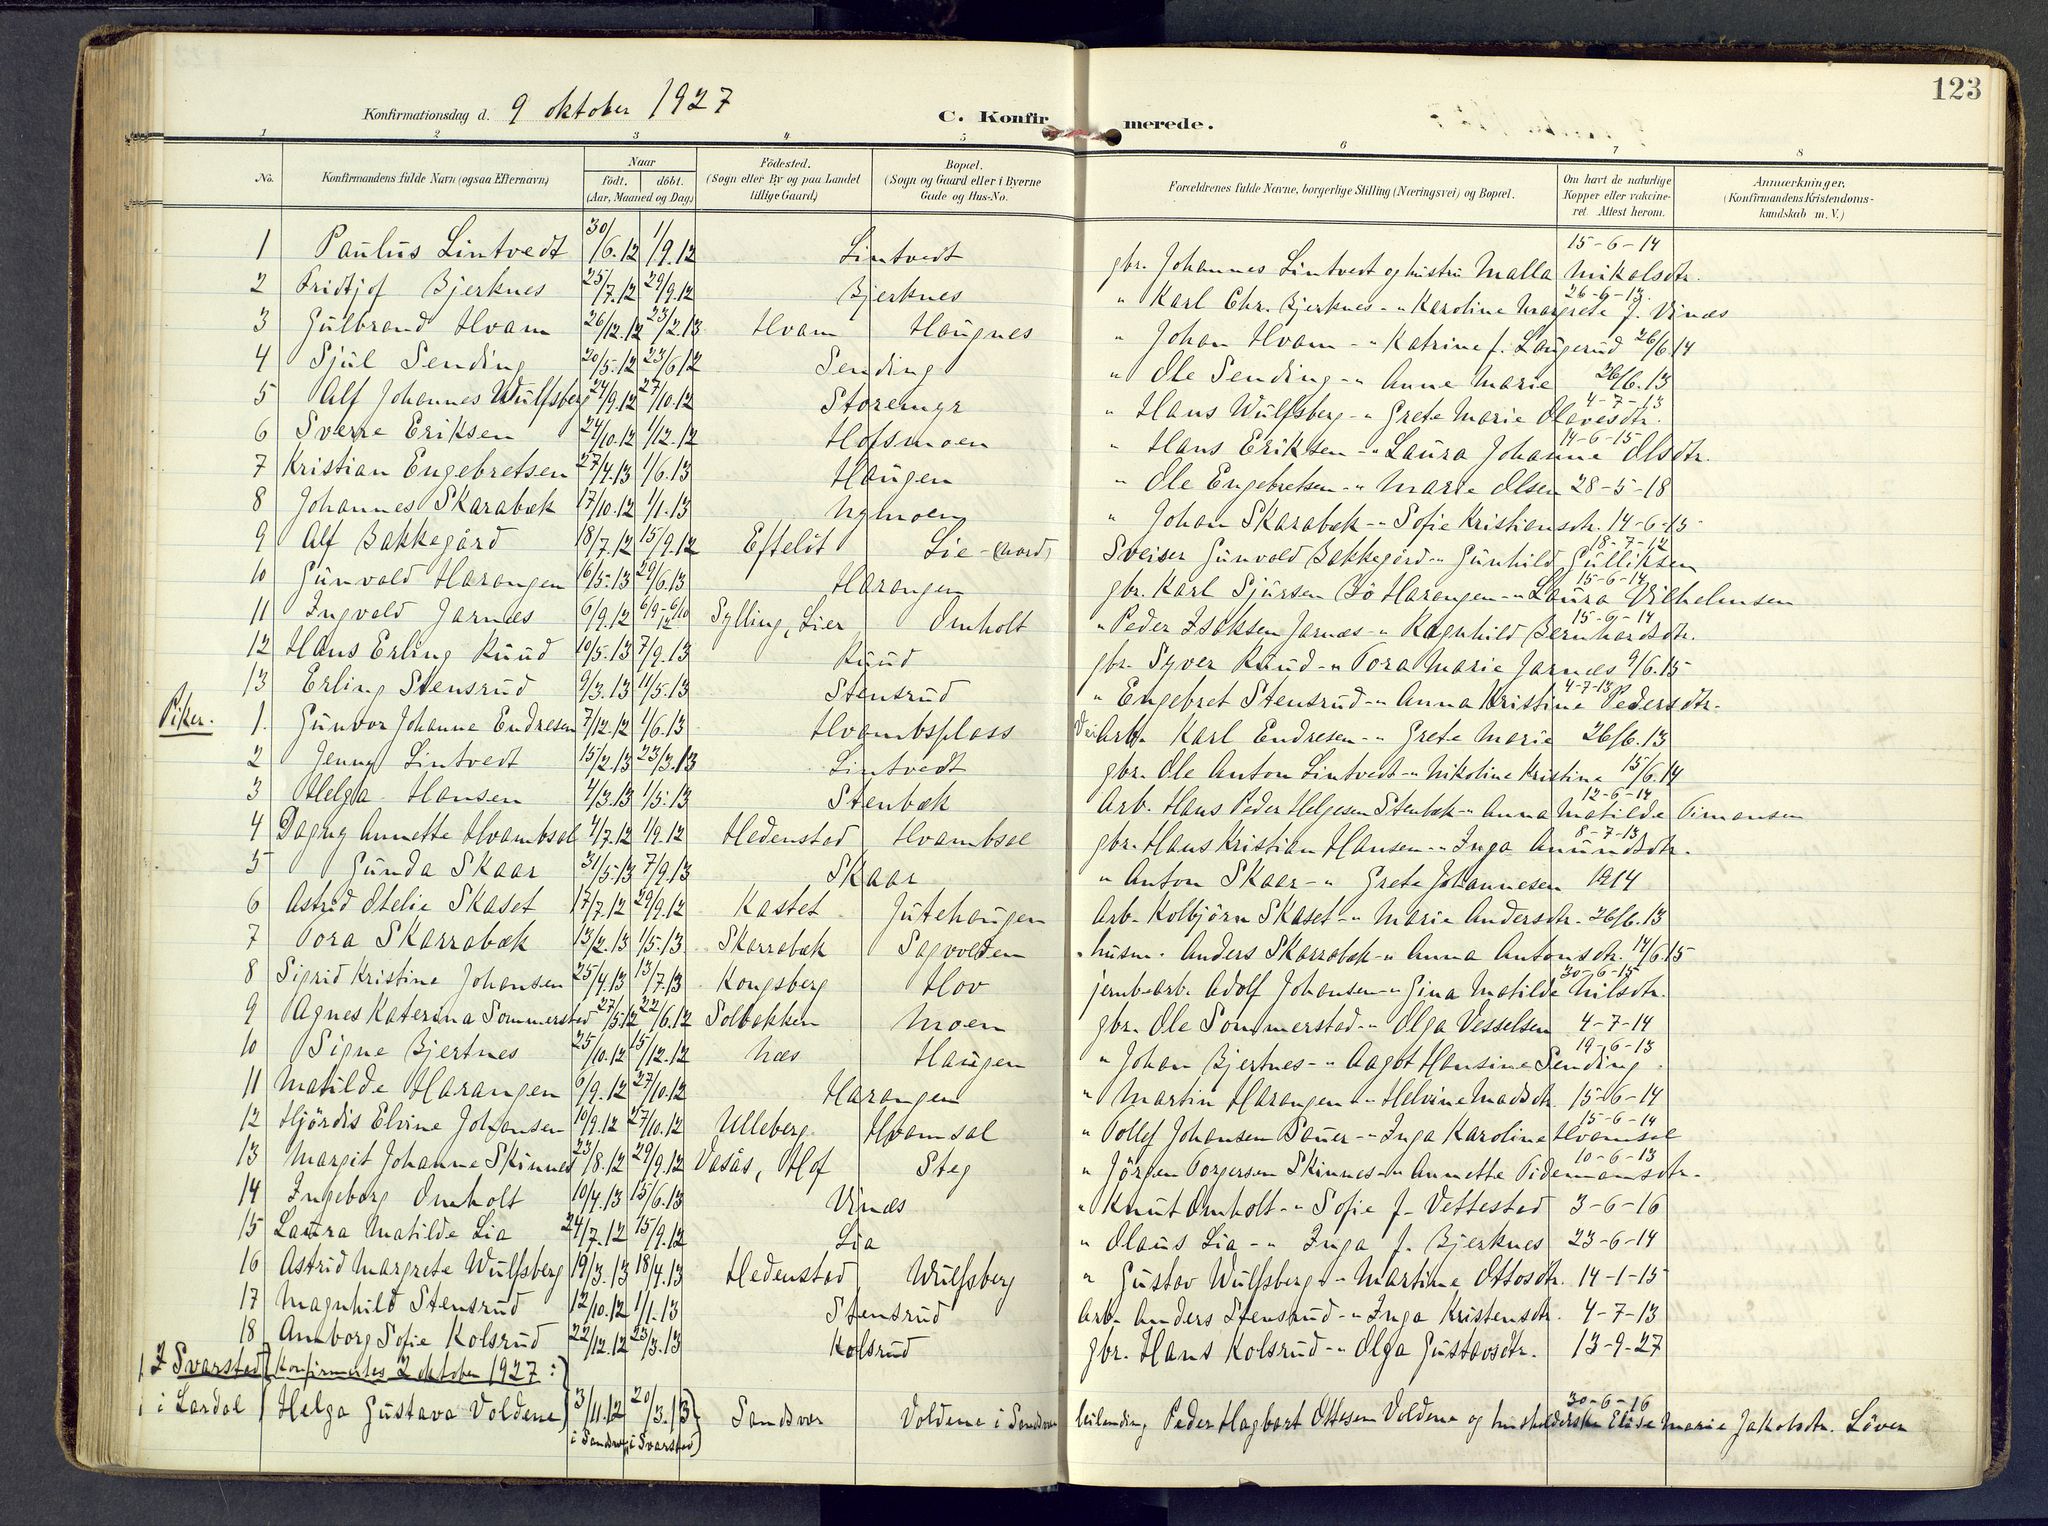 123
Konfirmationsdag d. 9 oktober 1927 C. Konfirmerede.
1 2 3 4 5 6 7 8
No. Konfirmandens fulde Navn (ogsaa Efternavn) Naar født. døbt. (Aar, Maaned og Dag) Födested. (Sogn eller By og paa Landet tillige Gaard) Bopæl. (Sogn og Gaard eller i Byerne Gade og Hus-No. Forældrenes fulde Navne, borgerlige Stilling (Næringsvei) og Bopæl. Om havt de naturlige Kopper eller vakcineret Attest herom. Anmærkninger. (Konfirmandens Kristendomskundskab m. V.)
1 Paulus Lintvedt 30/6.12 1/9.12 Lintvedt gbr. Johannes Lintvedt og hustru Malla Mikalsdtr. 15-6-14
2 Fridtjof Bjerknes 25/7.12 29/9.12 Bjerknes " Karl Chr. Bjerknes -"- Karoline Margrete f. Vinæs 26-6-13
3 Gulbrand Hvam 26/12.12 23/2.13 Hvam Haugnes " Johan Hvam -"- Katrine f. Laugerud 26/6.14
4 Sjul Sending 20/5.12 23/6.12 Sending " Ole Sending -"- Anne Marie 26/6.13
5 Alf Johannes Wulfsberg 24/9.12 27/10.12 Storemyr " Hans Wulfsberg -"- Grete Marie Olavesdtr. 4-7-13
6 Sverre Eriksen 24/10.12 1/12.12 Hofsmoen " Hans Eriksen -"- Laura Johanne Olsdtr. 14-6-15
7 Kristian Engebretsen 27/4.13 1/6.13 Haugen " Ole Engebretsen -"- Marie Olsen 28-5-18
8 Johannes Skarabæk 17/10.12 1/1.13 Nymoen " Johan Skarabæk -"- Sofie Kristiansdtr. 14-6-15
9 Alf Bakkegård 18/7.12 15/9.12 Efteløt Lie-(nord) Sveiser Gunvald Bakkegård -"- Gunhild Gulliksen 18-7-12
10 Gunvald Harangen 16/5.13 29/6.13 Harangen gbr. Karl Sjursen Bö Harangen -"- Laura Vilhelmsen 15-6-14
11 Ingvald Jarnæs 6/9.12 6/9-6/10 12 Sylling, Lier Omholt " Peder Isaksen Jarnæs -"- Ragnhild Bernhardsdtr. 15-6-14
12 Hans Erling Ruud 10/5.13 7/9.13 Ruud gbr. Syver Ruud -"- Tora Marie Jarnæs 9/6.15
13 Erling Stensrud 9/3.13 11/5.13 Stensrud " Engebret Stensrud -"- Anna Kristine Pedersdtr. 4-7-13
Piker.
1. Gunvor Johanne Endresen 7/12.12 1/6.13 Hvambsplass Vei Arb. Karl Endresen -"- Grete Marie 26/6.13
2 Jenny Lintvedt 15/2.13 23/3.13 Lintvedt gbr. Ole Anton Lintvedt -"- Nikoline Kristine 15/6.14
3 Helga Hansen 4/3.13 1/5.13 Stenbæk Arb. Hans Peder Helgesen Stenbæk -"- Anna Matilde Timansen 12-6-14
4 Dagny Annette Hvambsal 4/7.12 1/9.12 Hedenstad Hvambsal gbr. Hans Kristian Hansen -"- Inga Amundsdtr. 8-7-13
5 Gunda Skaar 31/5.13 7/9.13 Skaar " Anton Skaar -"- Grete Johannesen 1914
6 Astrid Otelie Skaset 17/7.12 29/9.12 Kastet Jutehaugen Arb. Kolbjörn Skaset -"- Marie Andersdtr. 26/6.13
7 Tora Skarrabæk 13/2.13 1/5.13 Skarrabæk Sagvolden husm. Anders Skarrabæk -"- Anna Antonsdtr. 14/6.15
8 Sigrid Kristine Johansen 25/4.13 13/7.13 Kongsberg Hov jernb-arb. Adolf Johansen -"- Gina Matilde Nilsdtr. 30-6-15
9 Agnes Katerina Sommerstad 27/5.12 22/6.12 Solbakken Moen gbr. Ole Sommerstad -"- Olga Vesselsen 4-7-14
10 Signe Bjertnes 25/10.12 15/12.12 Næs Haugen " Johan Bjertnes -"- Aagot Hansine Sending 19-6-13
11 Matilde Harangen 6/9.12 27/10.12 Harangen " Martin Harangen -"- Helvine Madsdtr. 15-6-14
12 Hjördis Elvine Johansen 10/9.12 27/10.12 Ulleberg Hvamsal " Tollef Johansen Sauer -"- Inga Karoline Hvamsal 15-6-14
13 Margit Johanne Skinnes 23/8.12 29/9.12 Vasås, Hof Steg " Jörgen Torgersen Skinnes -"- Annette Tidemansdtr. 10-6-13
14 Ingeborg Omholt 10/4.13 15/6.13 Vinæs " Knut Omholt -"- Sofie f. Vettestad 3-6-16
15 Laura Matilde Lia 24/7.12 15/9.12 Lia " Olaus Lia -"- Inga f. Bjerknes 23-6-14
16 Astrid Margrete Wulfsberg 19/3.13 18/4.13 Hedenstad Wulfsberg " Gustav Wulfsberg -"- Martine Ottosdtr. 14-1-15
17 Magnhild Stensrud 12/10.12 1/1.13 Stensrud Arb. Anders Stensrud -"- Inga Kristensdtr. 4-7-13
18 Amborg Sofie Kolsrud 22/12.12 23/3.13 Kolsrud gbr. Hans Kolsrud -"- Olga Gustavsdtr. 13-9-27
I Svarstad i Lardal Konfirmertes 2 oktober 1927:
Helga Gustava Voldene 3/11.12 i Sandsvær 20/3.13 i Svarstad Sandsvær Voldene i Sandsvær leilending Peder Hagbart Ottesen Voldene og husholderske Elise Marie Jakobsdtr. Löven 30-6-16